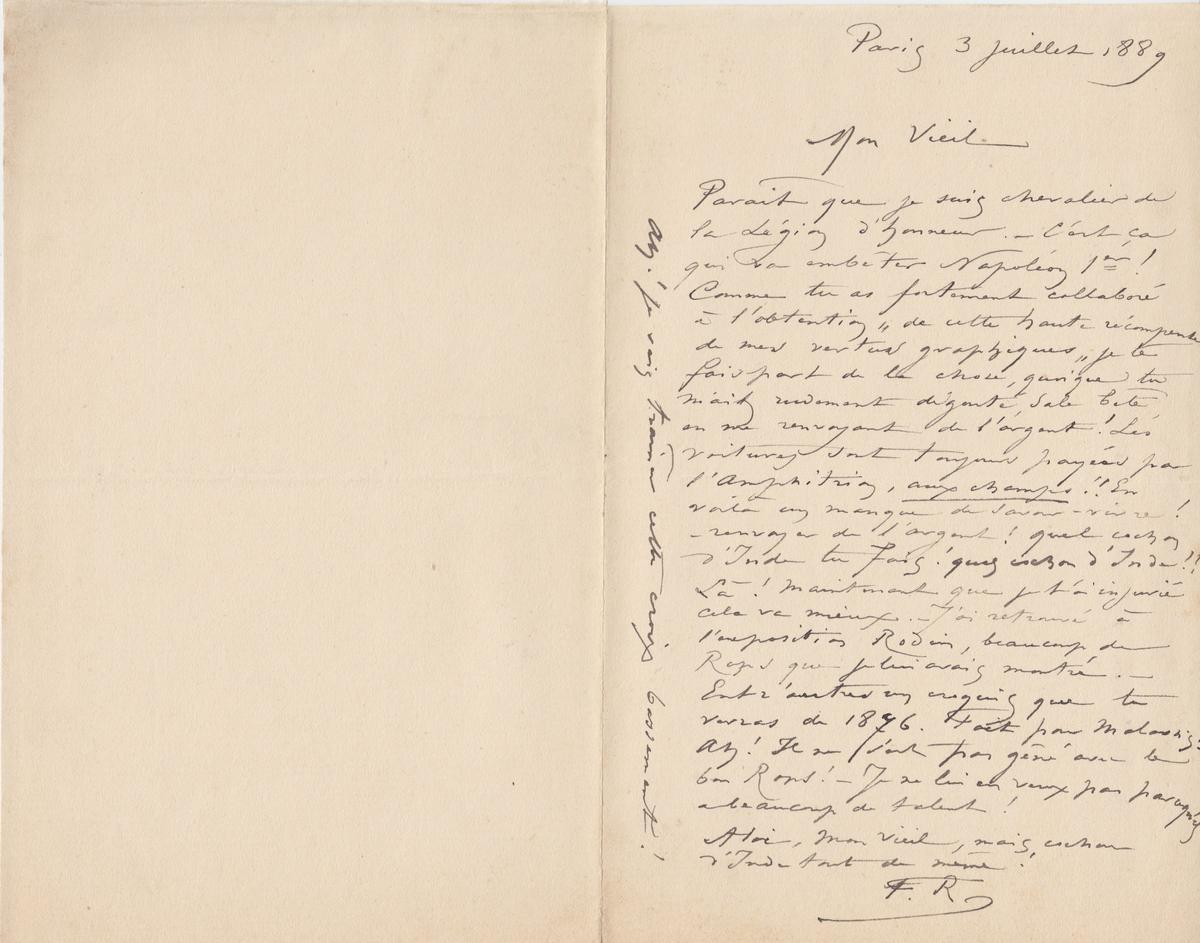 Paris 3 juillet 1889
Mon Vieil
Parait que je suis chevalier de
la Légion d'honneur. – C'est ça
qui va embêter Napoléon 1er !
Comme tu as fortement collaboré
à l'obtention „ de cette haute récompense
de mes vertus graphiques „ je te
fais part de la chose, quoique tu
m'ais rudement dégouté, Sale bête,
en me renvoyant de l'argent ! Les
voitures sont toujours payées par
l'Amphitrion, aux champs !! En
voilà un manque de savoir-vivre !
– renvoyer de l'argent ! quel cochon
d'Inde tu fais ! quel cochon d'Inde !!
Là ! Maintenant que je t'ai injurié
cela va mieux. – J'ai retrouvé à
l'exposition Rodin, beaucoup de
Rops que je lui avais montré. –
Entr'autres un croquis que tu
verras de 1876. Fait pour Malassis !
Ah ! Il ne s'est pas gêné avec le
bon Rops ! – Je ne lui en veux pas parcequ'il
a beaucoup de talent !
A toi, mon vieil, mais cochon
d'Inde tout de même !
F. R
Ah ! je vais trainer cette croix bassement !